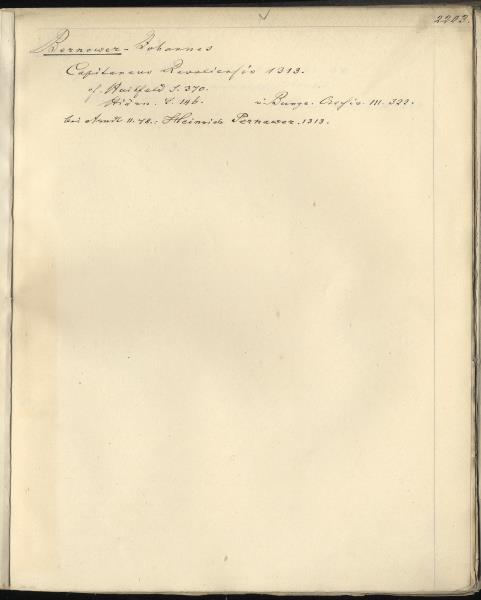 2203.
Bernower - Johannes
Capitaneus Revaliensis 1313.
cf. Huitfeld S. 370.
Hiärn. S. 146. u. Bunge. Archiv. III. 322.
bei Arndt II. 78.: Heinrich Pernawer. 1313.